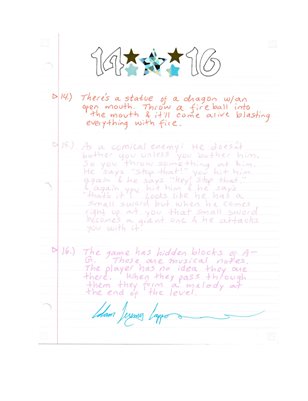 14 16
14.) There's a statue of a dragon w/an
open mouth. Throw a fireball into
the mouth & it'll come alive blasting
everything with fire.
15.) As a comical enemy! He doesn't
bother you unless you bother him.
So you throw something at him.
He says "Stop that!" You hit him
again & he says "Hey stop that"
& again you hit him & he says
"that's it" looks like he has a
small sword but when he comes
right up at you that small sword
becomes a giant one & he attacks
you with it!
16.) The game has hidden blocks of A-
G. These are musical notes.
The player has no idea they are
there. When they pass through
them they form a melody at
the end of the level.